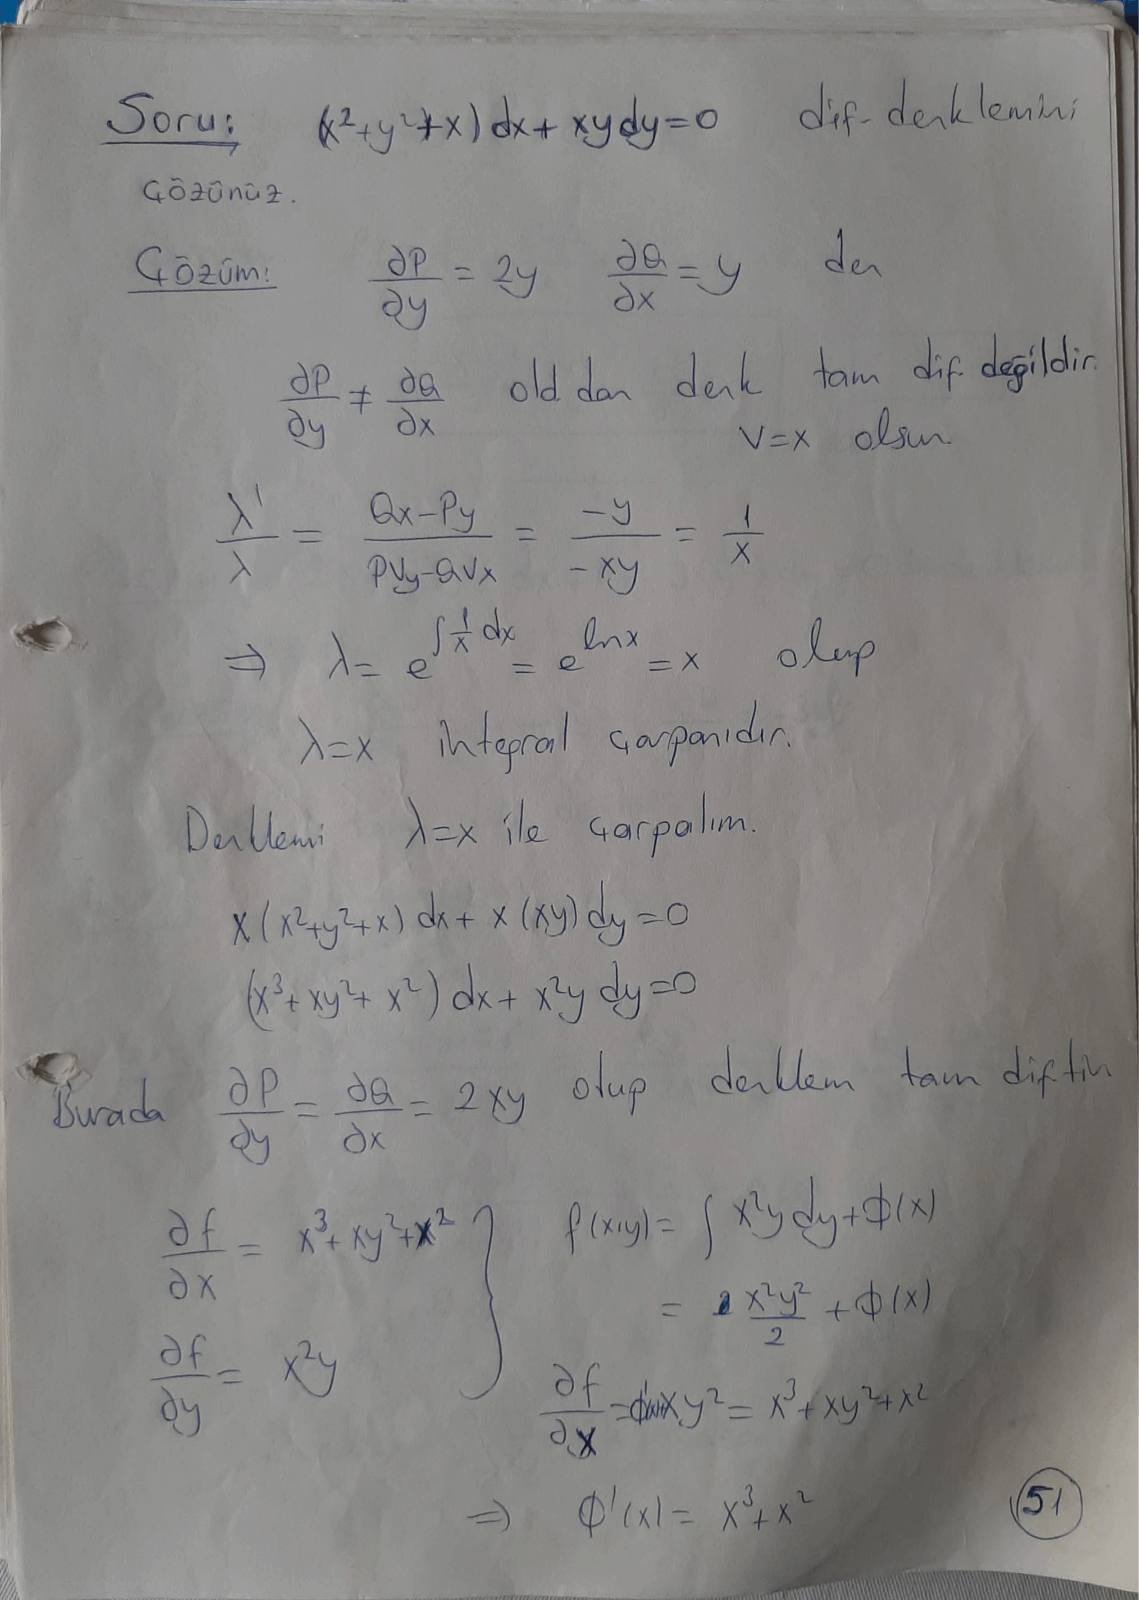 Soru: (x²+y²+x) dx + xy dy = 0 dif. denklemini
çözünüz.
Çözüm: ∂P/∂y = 2y ∂Q/∂x = y den
∂P/∂y ≠ ∂Q/∂x old dan denk tam dif. değildir.
V=x olsun
λ'/λ = (Qx-Py)/(PVy-QVx) = -y/-xy = 1/x
⇒ λ = e^∫(1/x)dx = e^lnx = x olup
λ=x integral çarpanıdır.
Denklemi λ=x ile çarpalım.
x(x²+y²+x) dx + x(xy) dy = 0
(x³+xy²+x²) dx + x²y dy = 0
Burada ∂P/∂y = ∂Q/∂x = 2xy olup denklem tam diftir
∂f/∂x = x³+xy²+x² } f(x,y) = ∫ x²y dy + ϕ(x)
= x²y²/2 + ϕ(x)
∂f/∂y = x²y
∂f/∂x = ϕ'(x)+xy² = x³+xy²+x²
⇒ ϕ'(x) = x³+x²
51